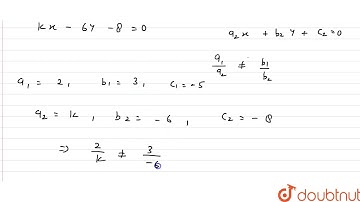 kx - 6y - 8 = 0
a₂x + b₂y + c₂ = 0
a₁/a₂ ≠ b₁/b₂
a₁ = 2, b₁ = 3, c₁ = -5
a₂ = k, b₂ = -6, c₂ = -8
⇒ 2/k ≠ 3/-6
doubtnut